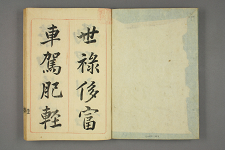 世祿侈富
車駕肥輕